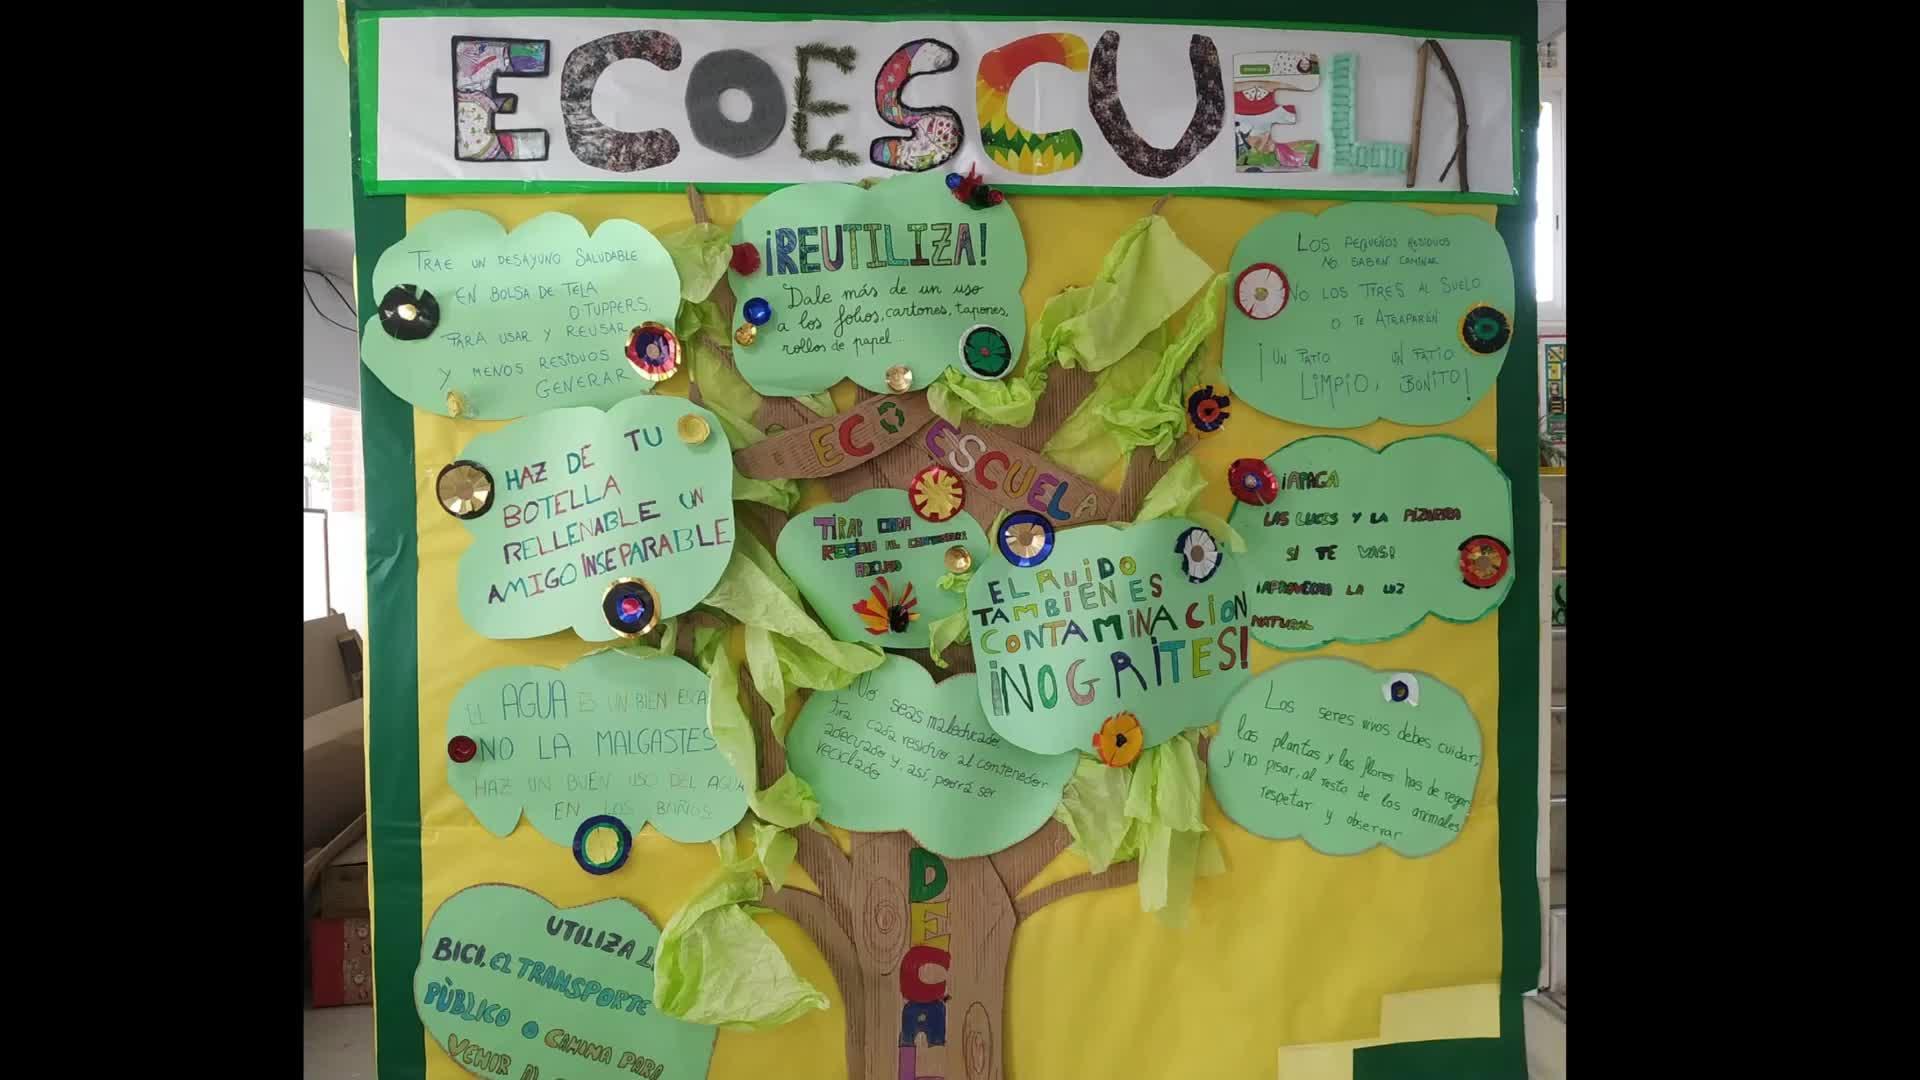 ECOESCUELA
TRAE UN DESAYUNO SALUDABLE
EN BOLSA DE TELA
O TUPPERS,
PARA USAR Y REUSAR
Y MENOS RESIDUOS
GENERAR
¡REUTILIZA!
Dale más de un uso
a los folios, cartones, tapones,
rollos de papel...
LOS PEQUEÑOS RESIDUOS
NO SABEN CAMINAR
NO LOS TIRES AL SUELO
O TE ATRAPARÁN
¡UN PATIO UN PATIO
LIMPIO, BONITO!
ECO
ESCUELA
HAZ DE TU
BOTELLA
RELLENABLE UN
AMIGO INSEPARABLE
TIRAR CADA
RESIDUO AL CONTENEDOR
EL RUIDO
TAMBIÉN ES
CONTAMINACIÓN
¡NO GRITES!
¡APAGA
LAS LUCES Y LA PIZARRA
SI TE VAS!
¡APROVECHA LA LUZ
NATURAL
EL AGUA ES UN BIEN ESCA
NO LA MALGASTES
HAZ UN BUEN USO DEL AGUA
EN LOS BAÑOS
No seas maleducado.
Tira cada residuo al contenedor
adecuado y, así, podrá ser
reciclado
Los seres vivos debes cuidar,
las plantas y las flores has de regar
y no pisar, al resto de los animales
respetar y observar
UTILIZA L
BICI, EL TRANSPORTE
PÙBLICO O CAMINA PARA
VENIR A
DECAL